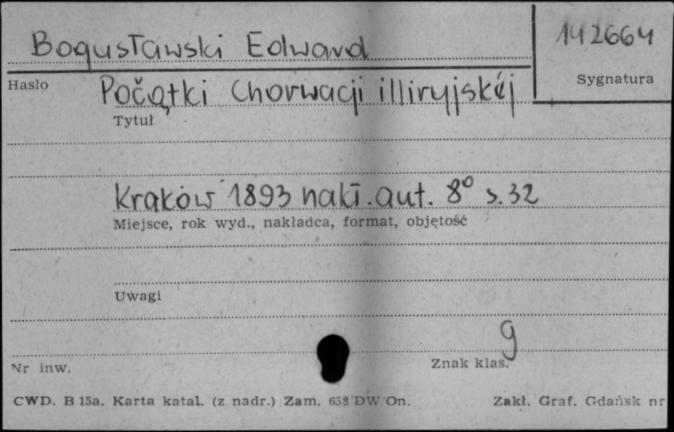 Bogusławski Edward
142664
Hasło
Sygnatura
Počątki Chorwacji illiryjskéj
Tytuł
Kraków 1893 nakł. aut. 8° s. 32
Miejsce, rok wyd., nakładca, format, objętość
Uwagi
g
Nr inw.
Znak klas.
CWD. B 15a. Karta katal. (z nadr.) Zam. 658 DW On.
Zakł. Graf. Gdańsk nr